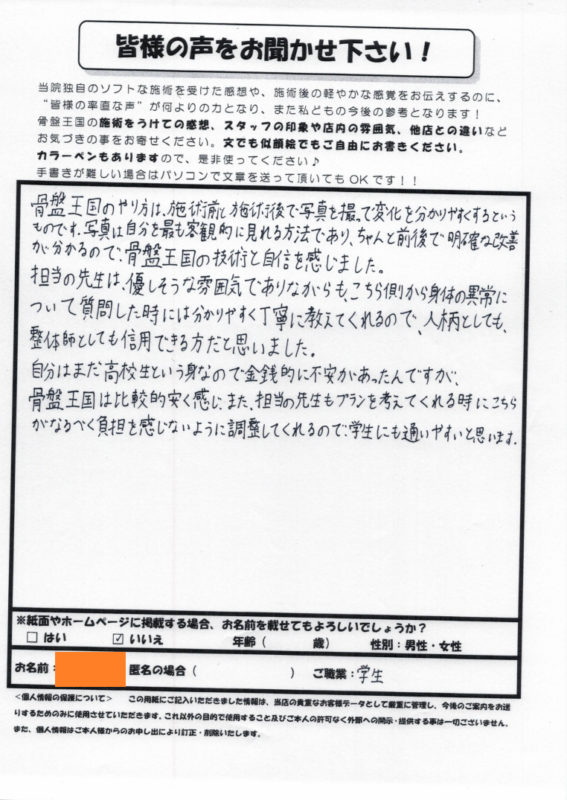 皆様の声をお聞かせ下さい！
当院独自のソフトな施術を受けた感想や、施術後の軽やかな感覚をお伝えするのに、
“皆様の率直な声”が何よりの力となり、また私どもの今後の参考となります！
骨盤王国の施術をうけての感想、スタッフの印象や店内の雰囲気、他店との違いなど
お気づきの事をお寄せください。文でも似顔絵でもご自由にお書きください。
カラーペンもありますので、是非使ってください♪
手書きが難しい場合はパソコンで文章を送って頂いてもOKです！！
骨盤王国のやり方は、施術前と施術後で写真を撮って変化を分かりやすくするという
ものです。写真は自分を最も客観的に見れる方法であり、ちゃんと前後で明確な改善
が分かるので、骨盤王国の技術と自信を感じました。
担当の先生は、優しそうな雰囲気でありながらも、こちら側から身体の異常に
ついて質問した時には分かりやすく丁寧に教えてくれるので、人柄としても、
整体師としても信用できる方だと思いました。
自分はまだ高校生という身なので金銭的に不安があったんですが、
骨盤王国は比較的安く感じ、また、担当の先生もプランを考えてくれる時にこちら
がなるべく負担を感じないように調整してくれるので、学生にも通いやすいと思います。
※紙面やホームページに掲載する場合、お名前を載せてもよろしいでしょうか？
□ はい ☑ いいえ 年齢（ 歳） 性別：男性・女性
お名前： 匿名の場合（ ） ご職業：学生
＜個人情報の保護について＞ この用紙にご記入いただきました情報は、当店の貴重なお客様データとして厳重に管理し、今後のご案内をお送
りするためのみに使用させていただきます。これ以外の目的で使用すること及びご本人の許可なく外部への開示・提供する事は一切ございません。
また、個人情報はご本人様からのお申し出により訂正・削除いたします。